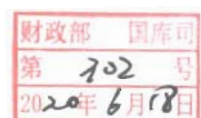 财政部 国库司
第 302 号
2020年6月18日